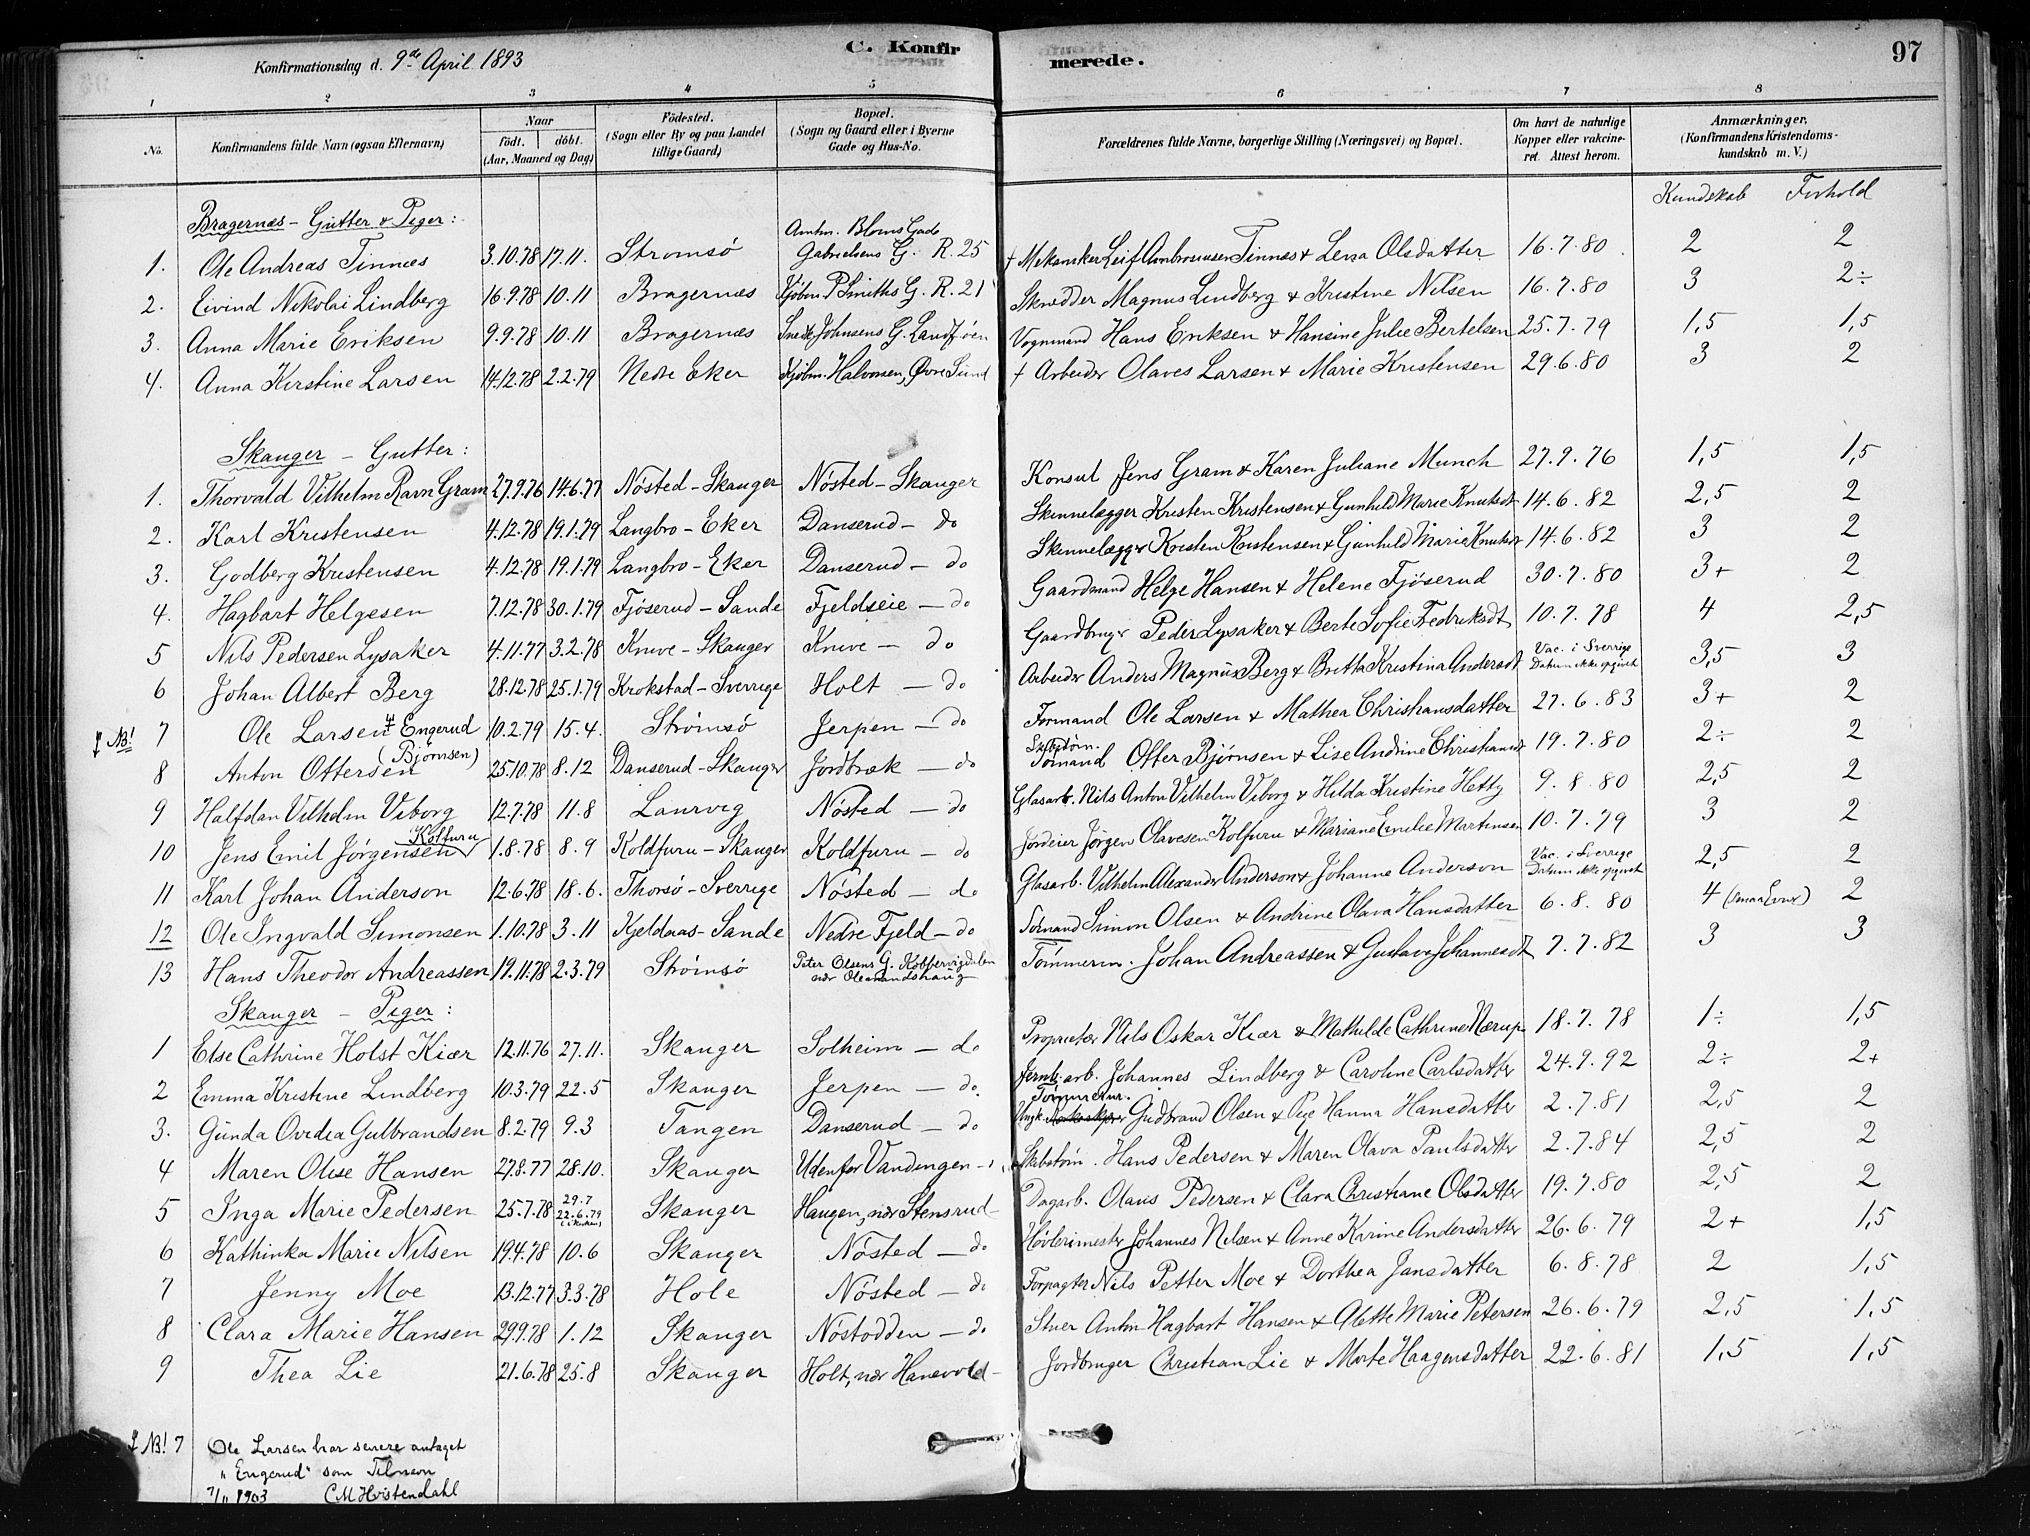 Konfirmationsdag d. 9de April 1893
C. Konfirmerede.
97
1 2 3 4 5 6 7 8
No. Konfirmandens fulde Navn (ogsaa Efternavn) Naar født. døbt. (Aar, Maaned og Dag) Fødested. (Sogn eller By og paa Landet tillige Gaard) Bopæl. (Sogn og Gaard eller i Byerne Gade og Hus-No. Forældrenes fulde Navne, borgerlige Stilling (Næringsvei) og Bopæl. Om havt de naturlige Kopper eller vakcineret. Attest herom. Anmærkninger. (Konfirmandens Kristendomskundskab m. V.)
Kundskab Forhold
Bragernæs - Gutter & Piger:
1. Ole Andreas Tinnæs 3.10.78 17.11. Strømsö Amtm. Bloms Gade Gabrielsens G. R. 25 † Mekaniker Leif Ambrosiussen Tinnæs & Lena Olsdatter 16.7.80 2 2
2. Eivind Nikolai Lindberg 16.9.78 10.11 Bragernæs Kjøbm. P Smiths G. R. 21 Skrædder Magnus Lindberg & Kristine Nilsen 16.7.80 3 2÷
3. Anna Marie Eriksen 9.9.78 10.11 Bragernæs Snedk. Johnsens G. Landfaöen Vognmand Hans Eriksen & Hansine Julie Bertelsen 25.7.79 1,5 1,5
4. Anna Kirstine Larsen 14.12.78 2.2.79 Nedre Eker Kjöbm. Halvorsen, Øvre Sund † Arbeider Olaves Larsen & Marie Kristensen 29.6.80 3 2
Skauger - Gutter:
1. Thorvald Vilhelm Ravn Gram 27.9.76 14.6.77 Nösted - Skauger Nösted - Skauger Konsul Jens Gram & Karen Juliane Munch 27.9.76 1,5 1,5
2. Karl Kristensen 4.12.78 19.1.79 Langbro - Eker Danserud - do Skinnelægger Kristen Kristensen & Gunhild Marie Knutsdt 14.6.82 2,5 2
3. Godberg Kristensen 4.12.78 19.1.79 Langbro - Eker Danserud - do Skinnelægger Kristen Kristensen & Gunhild Marie Knutsdt 14.6.82 3 2
4. Hagbart Helgesen 7.12.78 30.1.79 Fjöserud - Sande Fjeldseie - do Gaardmand Helge Hansen & Helene Fjöserud 30.7.80 3+ 2
5 Nils Pedersen Lysaker 4.11.77 3.2.78 Knive - Skauger Knive - do Gaardbruger Peder Lysaker & Berte Sofie Fredriksdt 10.7.78 4 2,5
6 Johan Albert Berg 28.12.78 25.1.79 Krokstad - Sverrige Holt - do Arbeider Anders Magnus Berg & Britta Kristina Andersdt Vac. i Sverrige Datum ikke opgivet 3,5 3
NB! 7 Ole Larsen Engerud 10.2.79 15.4. Strømsö Jerpen - do Formand Ole Larsen & Mathea Christiansdatter 27.6.83 3+ 2
8 Anton Ottersen (Bjørnsen) 25.10.78 8.12 Danserud - Skauger Jordbræk - do Formand Otter Bjørnsen & Lise Andrine Christiansdt 19.7.80 2÷ 2
9 Halfdan Vilhelm Viborg 12.7.78 11.8 Laurvig Nösted - do Glasarb. Nils Anton Vilhelm Viborg & Hilda Kristine Hetty 9.8.80 2,5 2
10 Jens Emil Jörgensen Kolfuru 1.8.78 8.9 Koldfuru - Skauger Koldfuru - do Jordeier Jörgen Olavesen Kolfuru & Mariane Emilie Martinsen 10.7.79 3 2
11 Karl Johan Anderson 12.6.78 18.6. Thorsö - Sverrige Nösted - do Glasarb. Vilhelm Alexander Anderson & Johanne Anderson Vac. i Sverrige Datum ikke opgivet 2,5 2
12 Ole Ingvald Simonsen 1.10.78 3.11 Kjeldaas - Sande Nedre Fjeld - do Formand Simon Olsen & Andrine Olava Hansdatter 6.8.80 4 (smaa Evner) 2
13 Hans Theodor Andreassen 19.11.78 2.3.79 Strömsö Peter Olsens G. Kobbervigdalen nær Olemandshaug Tömmerm. Johan Andreassen & Gustava Johannesdt 7.7.82 3 3
Skauger - Piger:
1 Else Cathrine Holst Kiær 12.11.76 27.11. Skauger Solheim - do Proprietær Nils Oskar Kiær & Mathilde Cathrine Nærup 18.7.78 1÷ 1,5
2 Emma Kristine Lindberg 10.3.79 22.5 Skauger Jerpen - do. Jernb. arb. Johannes Lindberg & Caroline Carlsdatter 24.9.92 2÷ 2+
3. Gunda Ovedia Gulbrandsen 8.2.79 9.3 Tangen Danserud - do Ungk. Gudbrand Olsen & Pige Hanna Hansdatter 2.7.81 2,5 2
4 Maren Olise Hansen 27.8.77 28.10. Skauger Udenfor Vandingen - Skibstøm. Hans Pedersen & Maren Olava Paulsdatter 2.7.84 2,5 2
5 Inga Marie Pedersen 25.7.78 29.7 22.6.79 (i Kirken) Skauger Haugen, nær Stensrud - Dagarb. Olaus Pedersen & Clara Christiane Olsdatter 19.7.80 2,5 2
6 Kathinka Marie Nilsen 19.4.78 10.6 Skauger Nösted - do Høvlerimester Johannes Nilsen & Anne Karine Andersdatter 26.6.79 2+ 1,5
7 Jenny Moe 13.12.77 3.3.78 Hole Nösted - do Forpagter Nils Petter Moe & Dorthea Jansdatter 6.8.78 2 1,5
8 Clara Marie Hansen 29.9.78 1.12 Skauger Nöstodden - do Stuer Anton Hagbart Hansen & Alette Marie Petersen 26.6.79 2,5 1,5
9 Thea Lie 21.6.78 25.8 Skauger Holt, nær Hanevold - Jordbruger Christian Lie & Marte Haagensdatter 22.6.81 1,5 1,5
NB! 7 Ole Larsen har senere antaget
"Engerud" som Tilnavn
1903 CM Hvistendahl